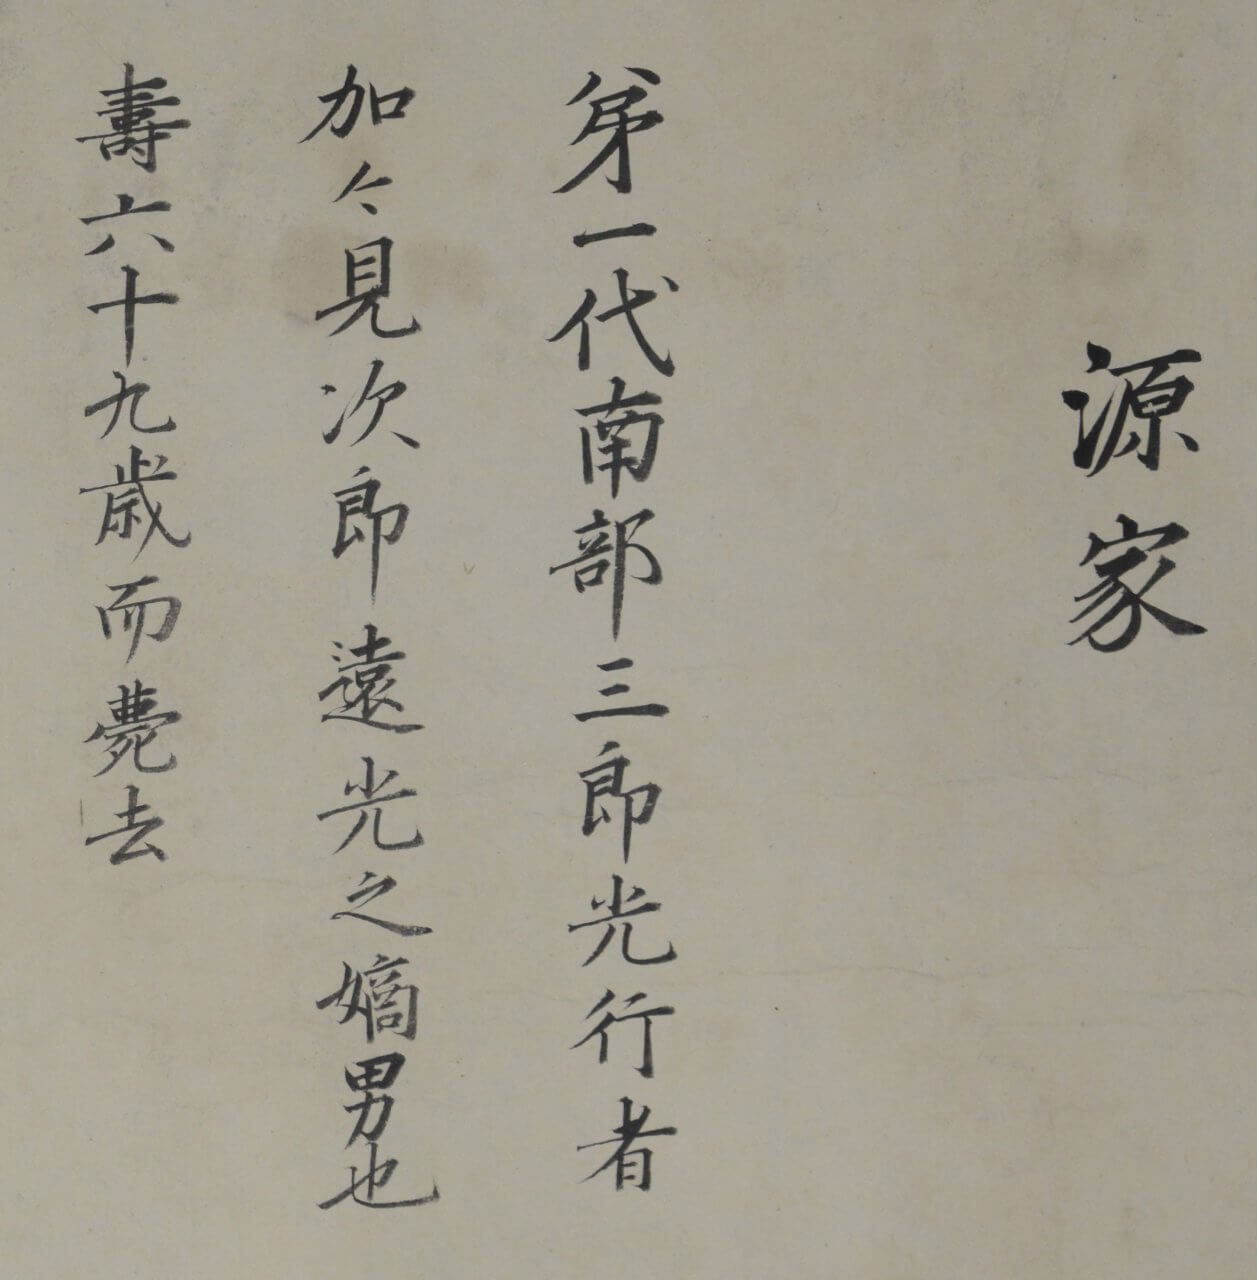 源家
第一代南部三郎光行者
加々見次郎遠光之嫡男也
壽六十九歳而薨去